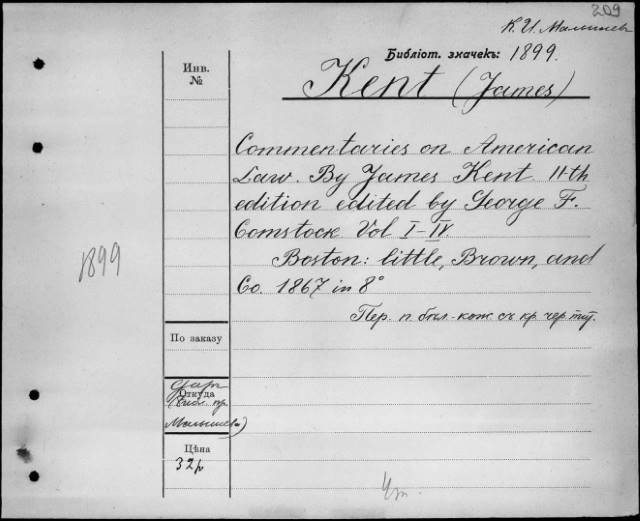 209
К. И. Малышев
Библіот. значекъ: 1899.
Инв.
№
Kent (James)
Commentaries on American
Law. By James Kent 11-th
edition edited by George F.
Comstock Vol I-IV.
Boston: little, Brown, and
Co. 1867 in 8°
Пер. п. бѣл.-кож. съ кр. чер. тит.
1899
По заказу
Откуда
даръ
(библ. пр.
Малышева)
Цѣна
32 р
4 т.